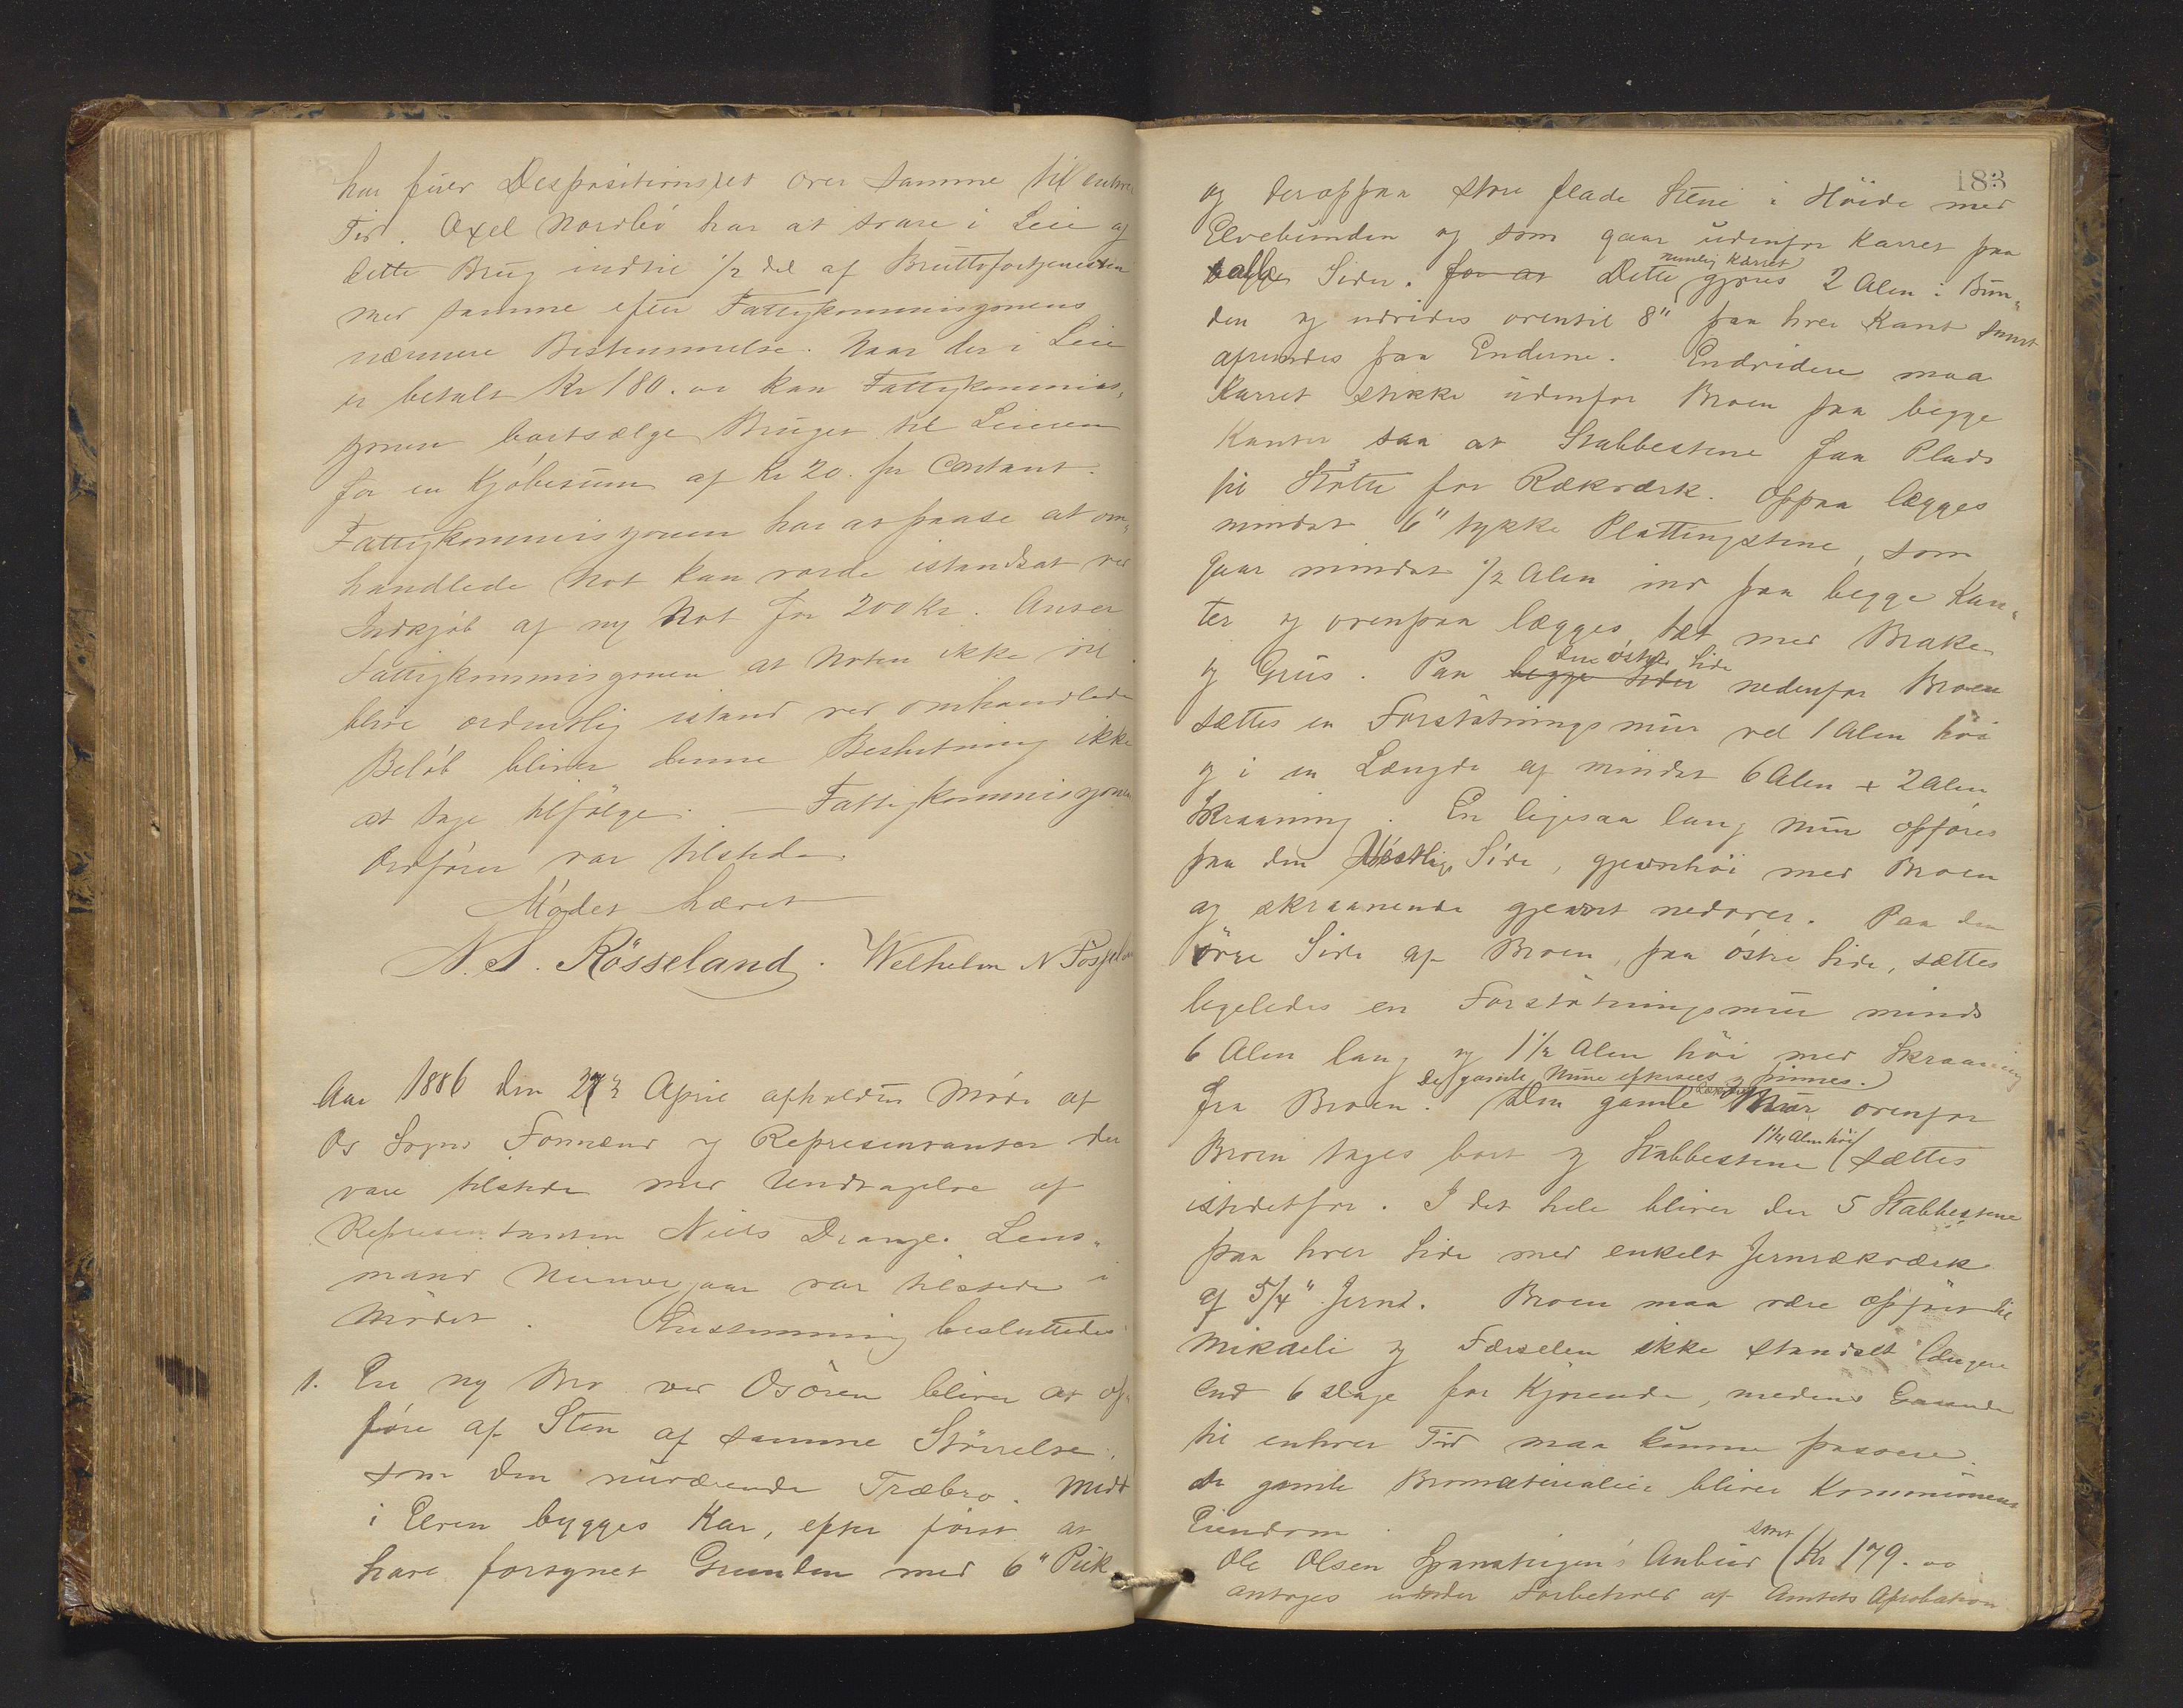 har fuld Despositionsret over samme til enhver
Tid. Axel Nordbö har at svare i Leie af
dette Brug indtil 1/2 del af Bruttofortjenesten
med samme efter Fattigkommisjonens
nærmere Bestemmelse. Naar der i Leie
er betalt Kr 180. oo kan Fattigkommis„
jonen bortsælge Bruget til Leieren
for en Kjöbesum af Kr 20. pr Contant.
Fattigkommisjonen har at paase at om„
handlede Not kan vorde istandsat ved
Indkjöb af ny Not for 200 Kr. Anser
Fattigkommisjonen at Noten ikke vil
blive ordentlig istand ved omhandlede
Belöb bliver denne Beslutning ikke
at tage tilfölge. — Fattigkommisjonens
Ordförer var tilstede.
Mödet hævet
N. S. Rösseland. Welhelm N
Aar 1886 den 27de April afholdtes Möde af
Os Sogns Formænd og Representanter der
vare tilstede med Undtagelse af
Representanten Niels Drange. Lens„
mand var tilstede i
Mödet. Enstemmig besluttedes
1. En ny Bro ved Osören bliver at op„
före af Sten af samme Störrelse
som den nuværende Træbro. Midt
i Elven bygges Kar, efter först at
have forsynet Grunden med 6"
183
og deroppaa store flade Stene i Höide med
Elvebunden og som gaar udenfor Karret paa
begge Sider. for at Dette gjöres 2 Alen i Bun„
nemlig Karret
den og udvides oventil 8" paa hver Kant samt
afrundes paa Enderne. Endvidere maa
Karret stikke udenfor Broen paa begge
Kanter saa at Stabbestene faa Plads
til Stötte for Rækværk. Oppaa lægges
mindst 6" tykke Plattingstene, som
gaar mindst 1/2 Alen ind paa begge Kan„
ter og ovenpaa lægges tæt med Brake
og Grus. Paa begge Sider nedenfor Broen
den östre Side
sættes en Forstötningsmur ved 1 Alen höi
og i en Længde af mindst 6 Alen + 2 Alen
Skraaning. En ligesaa lang Mur opföres
paa den Vestlige Side, gjevnhöi med Broen
og skraanende gjevnt nedover. Paa den
övre Side af Broen, paa östre Side, sættes
ligeledes en Forstötningsmur mindst
6 Alen lang og 1 1/2 Alen höi med Skraaning
De gamle Mure eftersees og pinnes.
fra Broen. Den gamle Mur ovenfor
1 1/4 Alen höi
Broen tages bort og Stabbestene sættes
istedetfor. I det hele bliver der 5 Stabbestene
paa hver Side med enkelt Jernrækværk
af 5/4" Jernd. Broen maa være opfört til
Mikaeli og Færselen ikke standset længere
end 6 Dage for Kjörende, medens Gaaende
til enhver Tid maa kunne passere.
de gamle Bromaterialier bliver Kommunens
Eiendom.
Ole Olsen Anbud Kr 179. oo
stort
antages under Forbehold af Amtets Aprobation